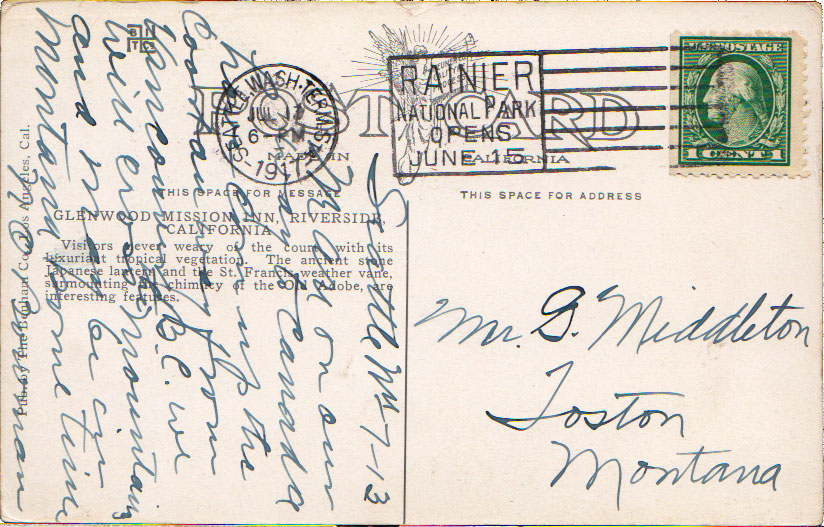 B N
T Co
POST CARD
MADE IN CALIFORNIA
SEATTLE, WASH. TERMINAL STA.
JUL 13
6-PM
1917
RAINIER
NATIONAL PARK
OPENS
JUNE 15
U.S. POSTAGE
1 CENT 1
THIS SPACE FOR MESSAGE
THIS SPACE FOR ADDRESS
GLENWOOD MISSION INN, RIVERSIDE,
CALIFORNIA
Visitors never weary of the court with its
luxuriant tropical vegetation. The ancient stone
Japanese lantern and the St. Francis weather vane,
surmounting the chimney of the Old Adobe, are
interesting features.
Pub. by The Benham Co., Los Angeles, Cal.
Seattle Wn 7-13
Am on our
way to Canada
up the
coast from
Vancouver B.C. we
will cross mountains
and
Montana some time
Mr. G. Middleton
Toston
Montana